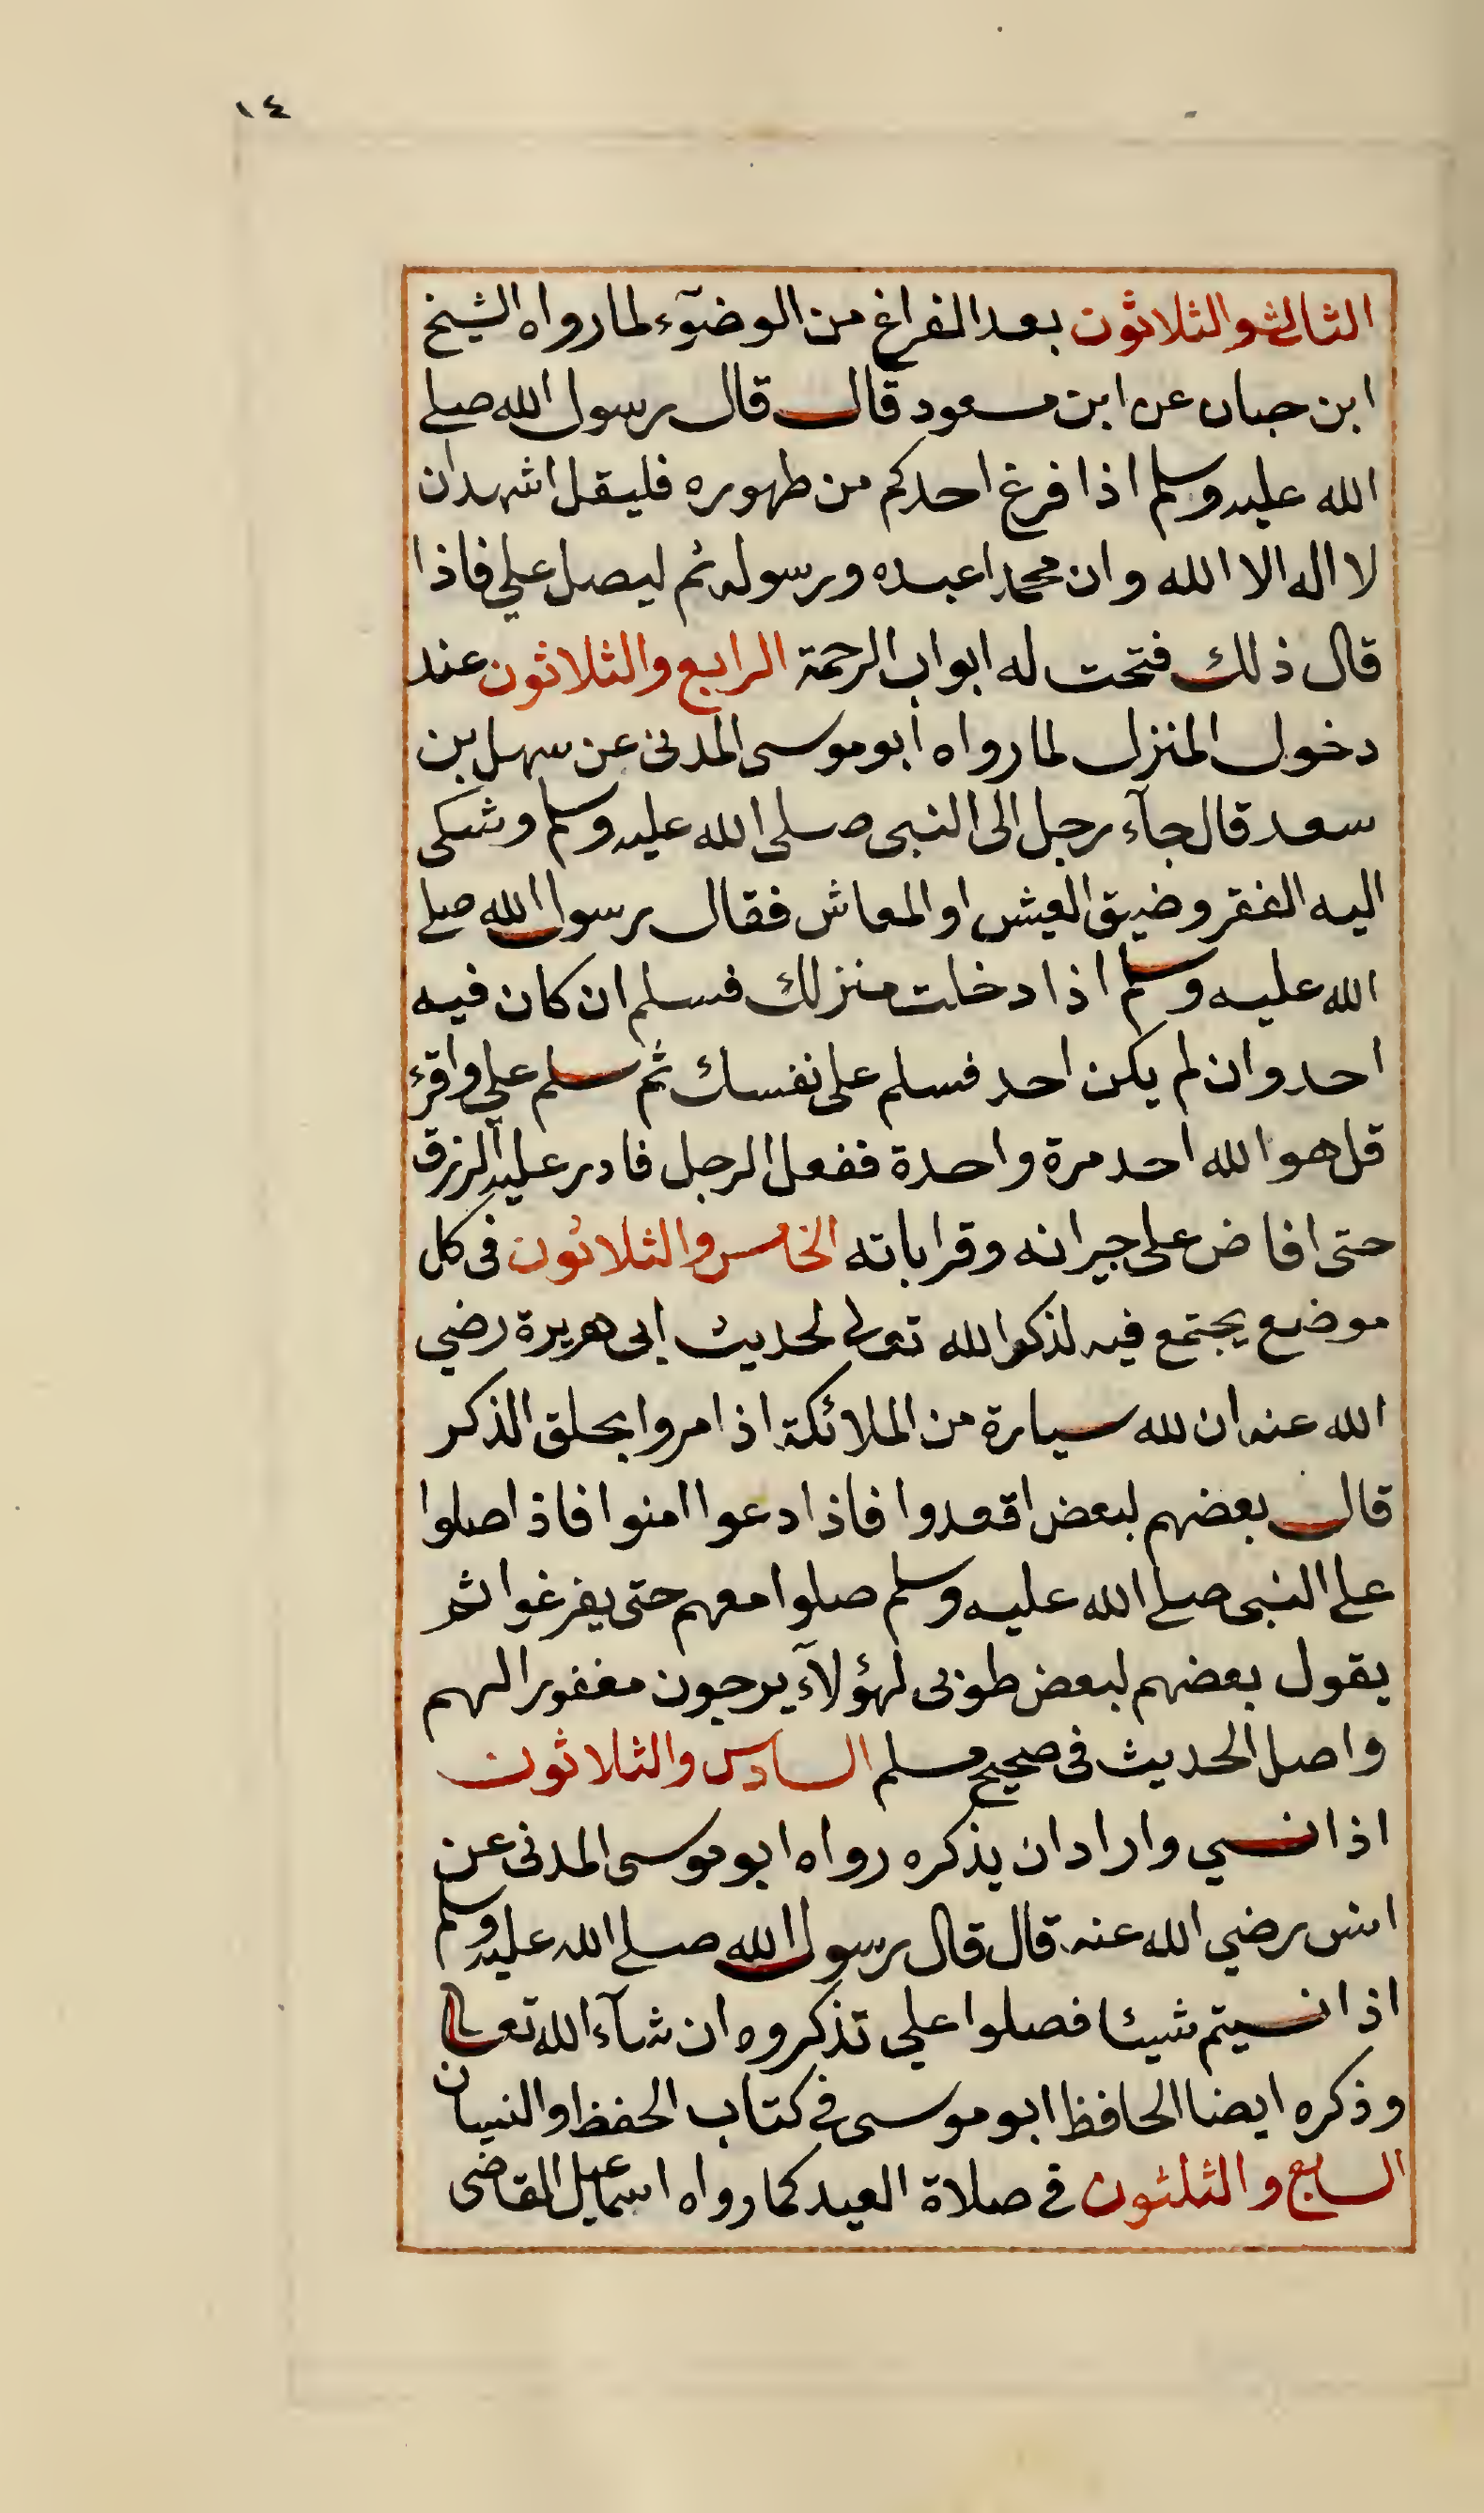 ١٤
الثالث والثلاثون بعد الفراغ من الوضوٓء لما رواه الشيخ
ابن حبان عن ابن مسعود قال قال رسول الله صلى
الله عليه وسلم اذا فرغ احدكم من طهوره فليقل اشهد ان
لا اله الا الله وان محمدا عبده ورسوله ثم ليصل علي فاذا
قال ذلك فتحت له ابواب الرحمة الرابع والثلاثون عند
دخول المنزل لما رواه ابو موسى المدنى عن سهل بن
سعد قال جآء رجل الى النبى صلى الله عليه وسلم وشكى
اليه الفقر وضيق العيش او المعاش فقال رسول الله صلى
الله عليه وسلم اذا دخلت منزلك فسلم ان كان فيه
احد وان لم يكن احد فسلم على نفسك ثم سلم علي واقرء
قل هو الله احد مرة واحدة ففعل الرجل فادر عليه الرزق
حتى افاض على جيرانه وقراباته الخامس والثلاثون فى كل
موضع يجتمع فيه لذكر الله تعالى لحديث ابى هريرة رضي
الله عنه ان لله سيارة من الملائكة اذا مروا بحلق الذكر
قال بعضهم لبعض اقعدوا فاذا دعوا امنوا فاذا صلوا
على النبى صلى الله عليه وسلم صلوا معهم حتى يفرغوا ثم
يقول بعضهم لبعض طوبى لهؤلآء يرجون مغفورا لهم
واصل الحديث فى صحيح مسلم السادس والثلاثون
اذا نسي واراد ان يذكره رواه ابو موسى المدنى عن
انس رضي الله عنه قال قال رسول الله صلى الله عليه وسلم
اذا نسيتم شيئا فصلوا علي تذكروه ان شآء الله تعالى
وذكره ايضا الحافظ ابو موسى في كتاب الحفظ والنسيان
السابع والثلثون في صلاة العيد كما رواه اسمعيل القاضى